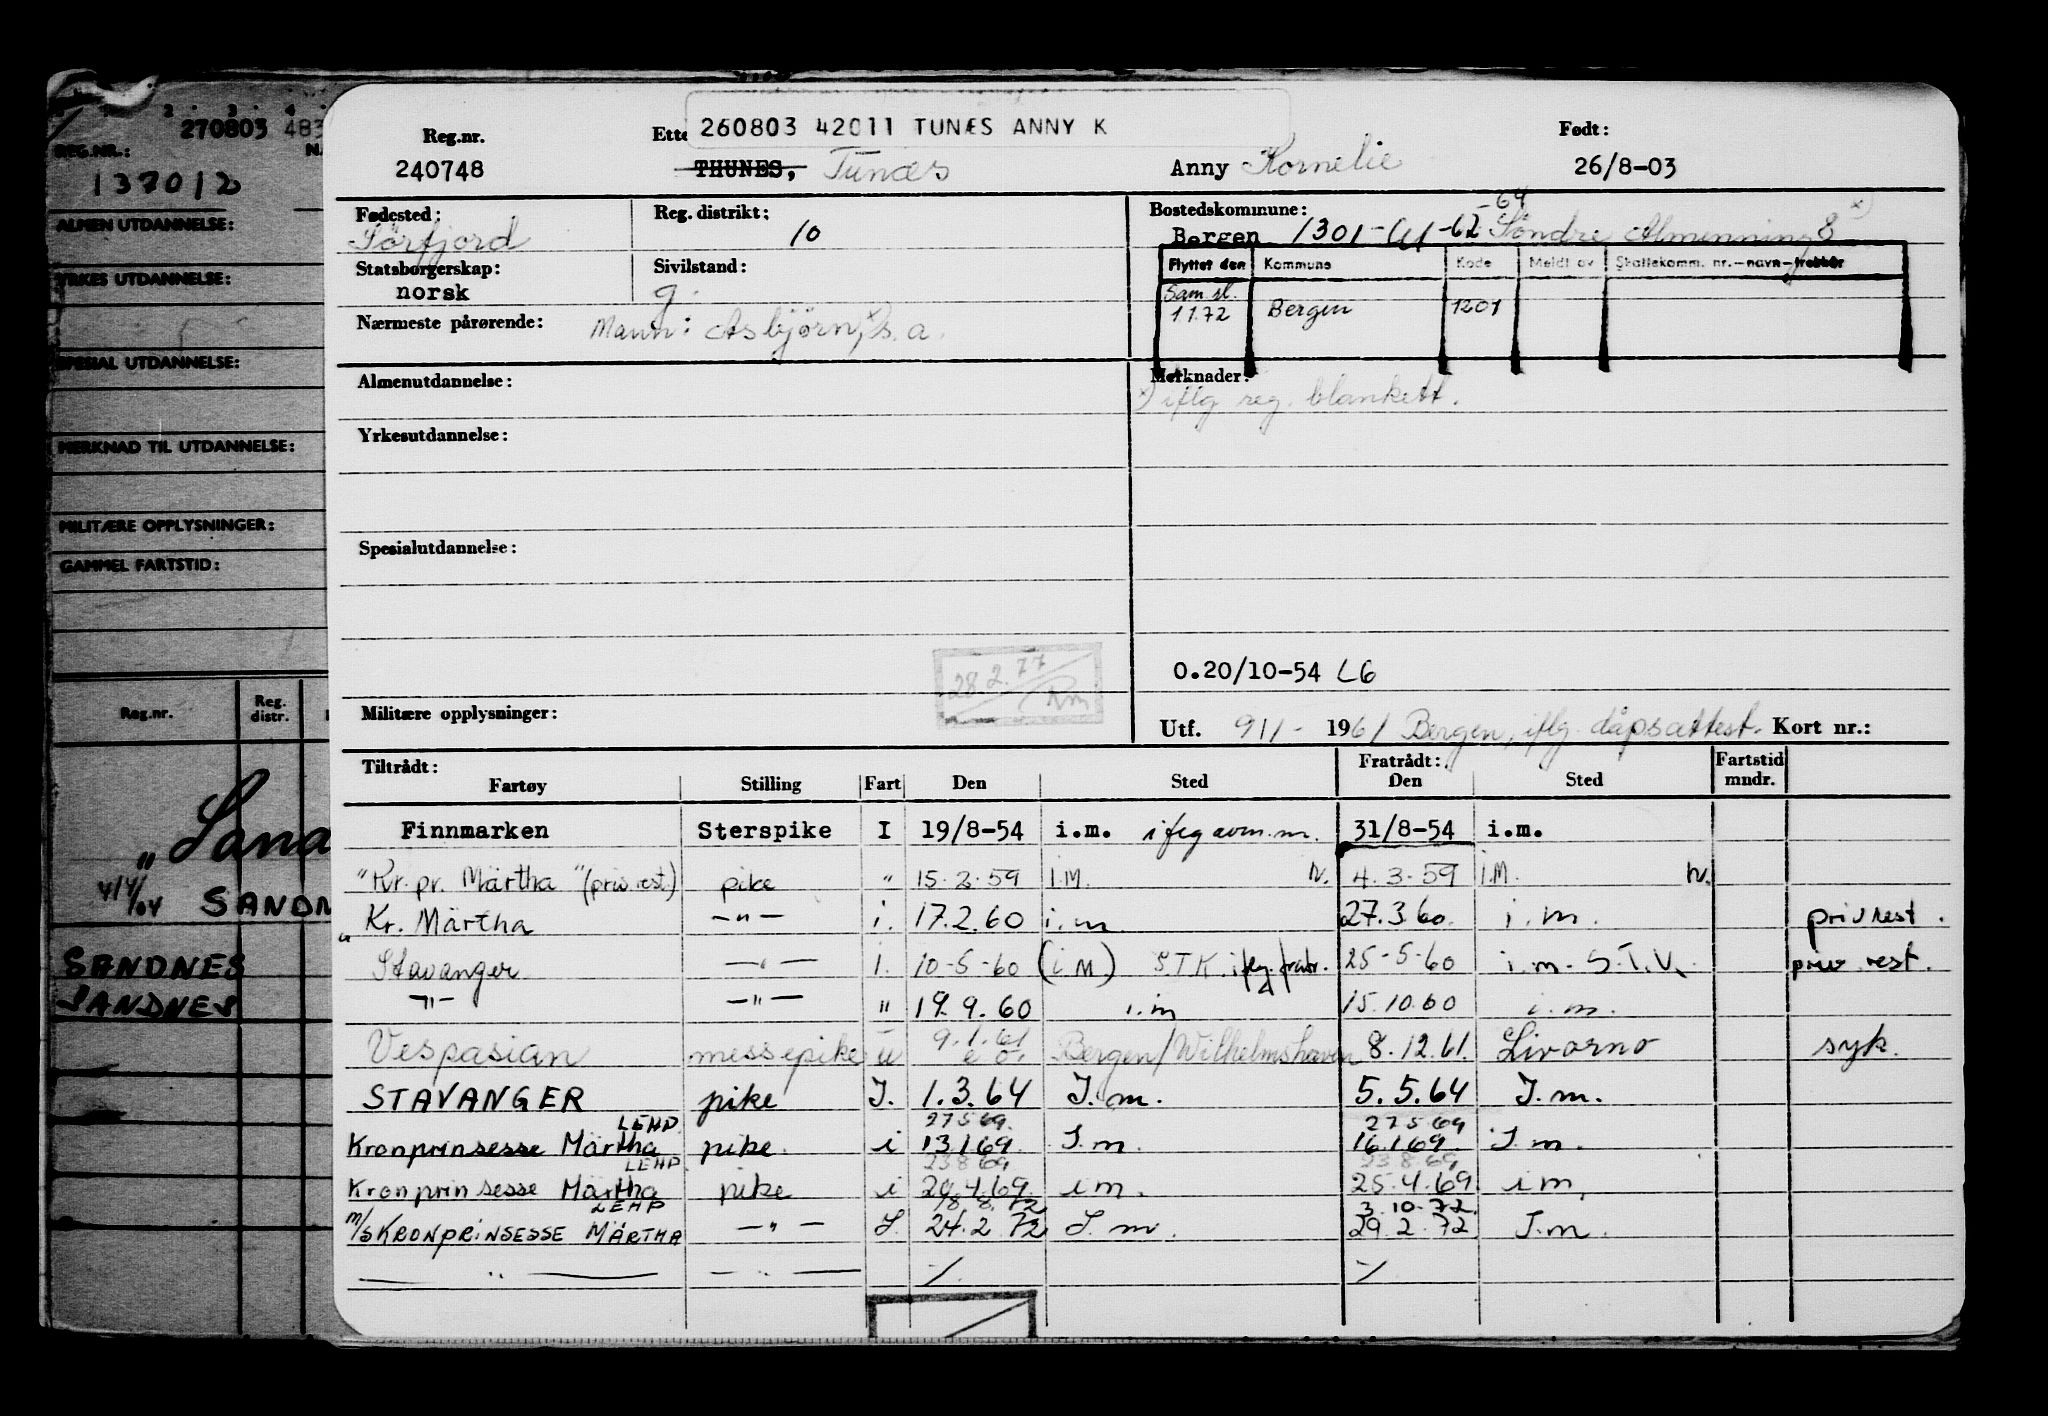 2 3 4
270803 483
REG.NR.:
137012
ALMEN UTDANNELSE:
YRKES UTDANNELSE:
SPESIAL UTDANNELSE:
MERKNAD TIL UTDANNELSE:
MILITÆRE OPPLYSNINGER:
GAMMEL FARTSTID:
Reg.nr. Reg. distr.
SANDNES
SANDNES
260803 42011 TUNÆS ANNY K
Reg.nr. Ette Født:
240748 THUNES, Tunæs Anny Kornelie 26/8-03
Fødested: Reg. distrikt: Bostedskommune: -64
Sørfjord 10 Bergen 1301-61-62 Söndre Almenning 8 x)
Statsborgerskap: Sivilstand: Flyttet den Kommune Kode Meldt av Skattekomm. nr.-navn-trekkår
norsk g. Sam. sl.
1.1.72 Bergen 1201
Nærmeste pårørende: Mann: Asbjörn, s.a.
Almenutdannelse: Merknader:
x) iflg reg. blankett.
Yrkesutdannelse:
Spesialutdannelse:
28.2.77
0.20/10-54 LG
Militære opplysninger: Utf. 9/1- 1961 Bergen, iflg. dåpsattest. Kort nr.:
Tiltrådt: Fratrådt: Fartstid mndr.
Fartøy Stilling Fart Den Sted Den Sted
Finnmarken Sterspike I 19/8-54 i.m. iflg avm. m. 31/8-54 i.m.
"Kr. pr. Märtha" (priv. rest.) pike " 15.2.59 I.M. N. 4.3.59 I.M. N.
Kr. Märtha -"- i. 17.2.60 i.m 27.3.60. i.m. priv rest.
Stavanger -"- i. 10-5-60 (i.M) STK. iflg. fratr. 25-5-60 i.m. S.T.V. priv. rest.
-"- -"- " 19.9.60 i.m 15.10.60 i.m.
Vespasian messepike u 9.1.61 Bergen/Wilhelmshaven 8.12.61. Livorno syk.
STAVANGER pike I. 1.3.64 I.m. 5.5.64 I.m.
LEHP 27.5.69. 27.5.69
Kronprinsesse Märtha pike i 13.1.69. I.m. 16.1.69. I.m.
LEHP 23.8.69 23.8.69
Kronprinsesse Märtha pike i 20.4.69 i m. 25.4.69. i m.
LEHP 18.8.72 3.10.72.
m/s KRONPRINSESSE MÄRTHA -"- I. 24.2.72 I.m. 29.2.72 I.m.
-"- -"- -/. -/.